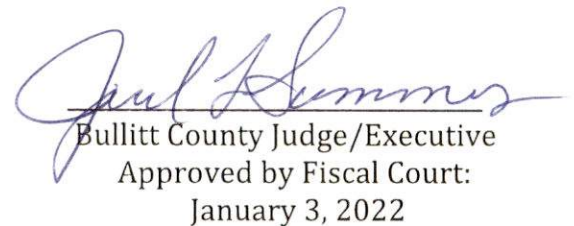 Summers
Bullitt County Judge/Executive
Approved by Fiscal Court:
January 3, 2022